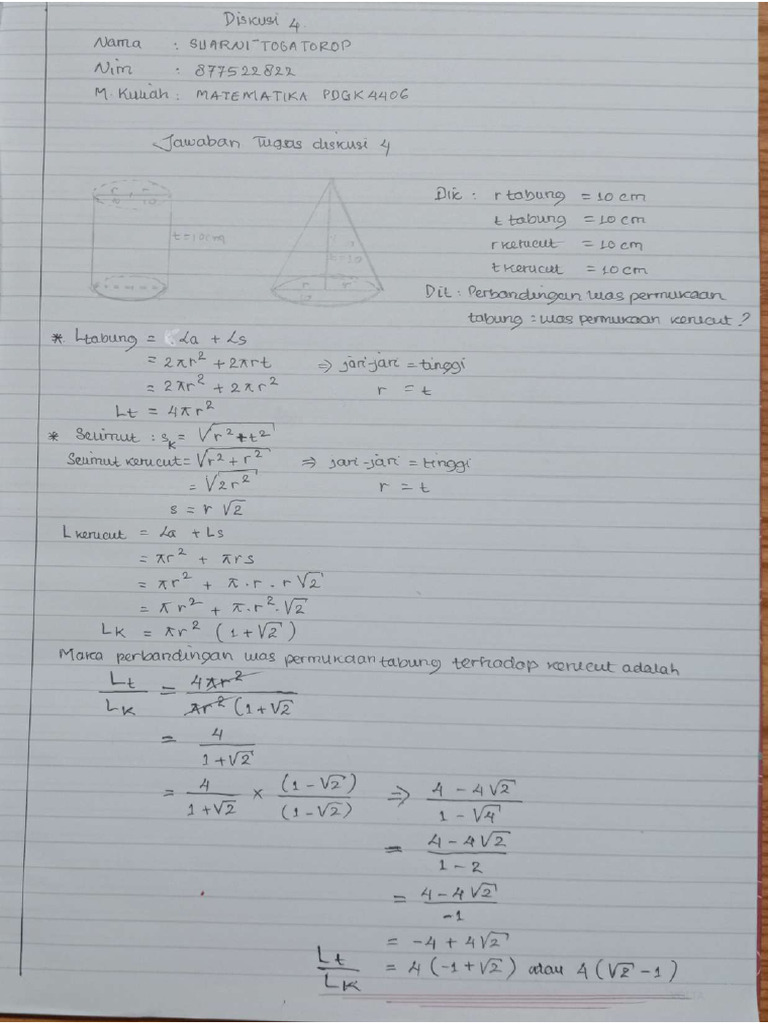 Diskusi 4
Nama : SUARNI TOGATOROP
Nim : 877522822
M. Kuliah : MATEMATIKA PDGK4406
Jawaban Tugas diskusi 4
t=10cm
r r
Dik : r tabung = 10 cm
t tabung = 10 cm
r kerucut = 10 cm
t kerucut = 10 cm
Dit : Perbandingan luas permukaan
tabung : luas permukaan kerucut ?
* Ltabung = La + Ls
= 2πr² + 2πrt ⇒ jari-jari = tinggi
= 2πr² + 2πr² r = t
Lt = 4πr²
* Selimut : sk = √r² + t²
Selimut kerucut = √r² + r² ⇒ jari-jari = tinggi
= √2r² r = t
s = r √2
L kerucut = La + Ls
= πr² + πrs
= πr² + π . r . r√2
= πr² + π . r² . √2
Lk = πr² (1 + √2)
Maka perbandingan luas permukaan tabung terhadap kerucut adalah
Lt/Lk = 4πr²/πr² (1 + √2
= 4/1+√2
= 4/1+√2 × (1-√2)/(1-√2) ⇒ 4 - 4√2/1 - √4
= 4 - 4√2/1 - 2
= 4 - 4√2/-1
= -4 + 4√2
Lt/Lk = 4 (-1 + √2) atau 4 (√2 - 1)